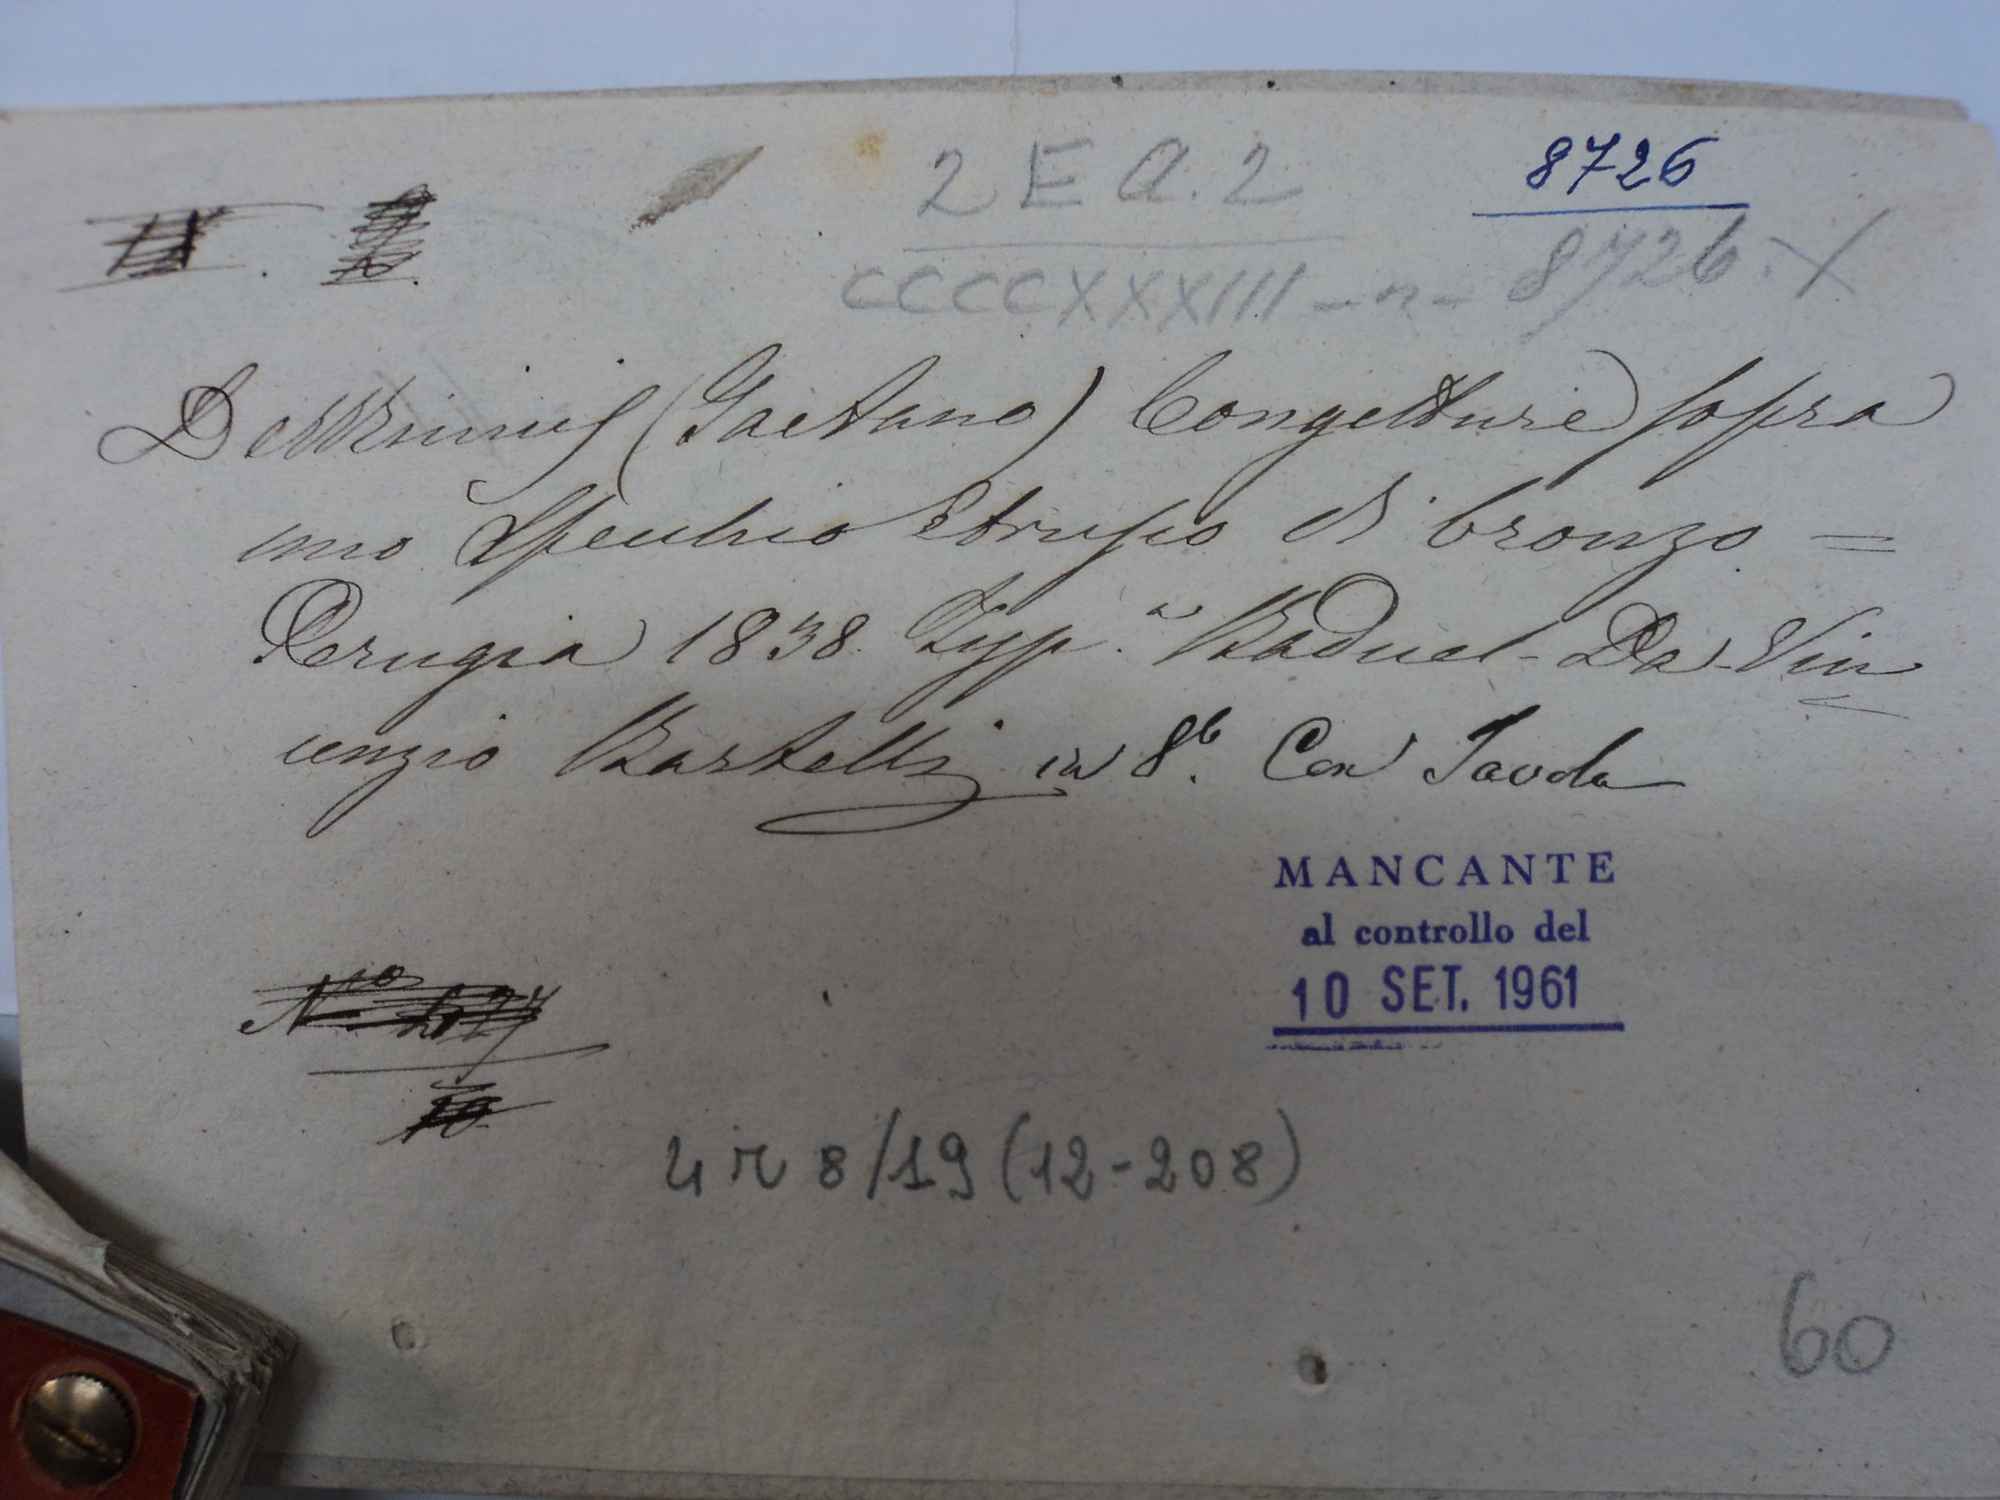 2 E A. 2
8726
CCCCXXXIII - n - 8726. X
De Minicis (Gaetano) Congetture sopra
uno Specchio Etrusco di bronzo =
Perugia 1838. Typ.a Baduel - Da Vin
cenzio Bartelli in 8°. Con Tavola
MANCANTE
al controllo del
10 SET. 1961
4 r 8/19 (12-208)
60